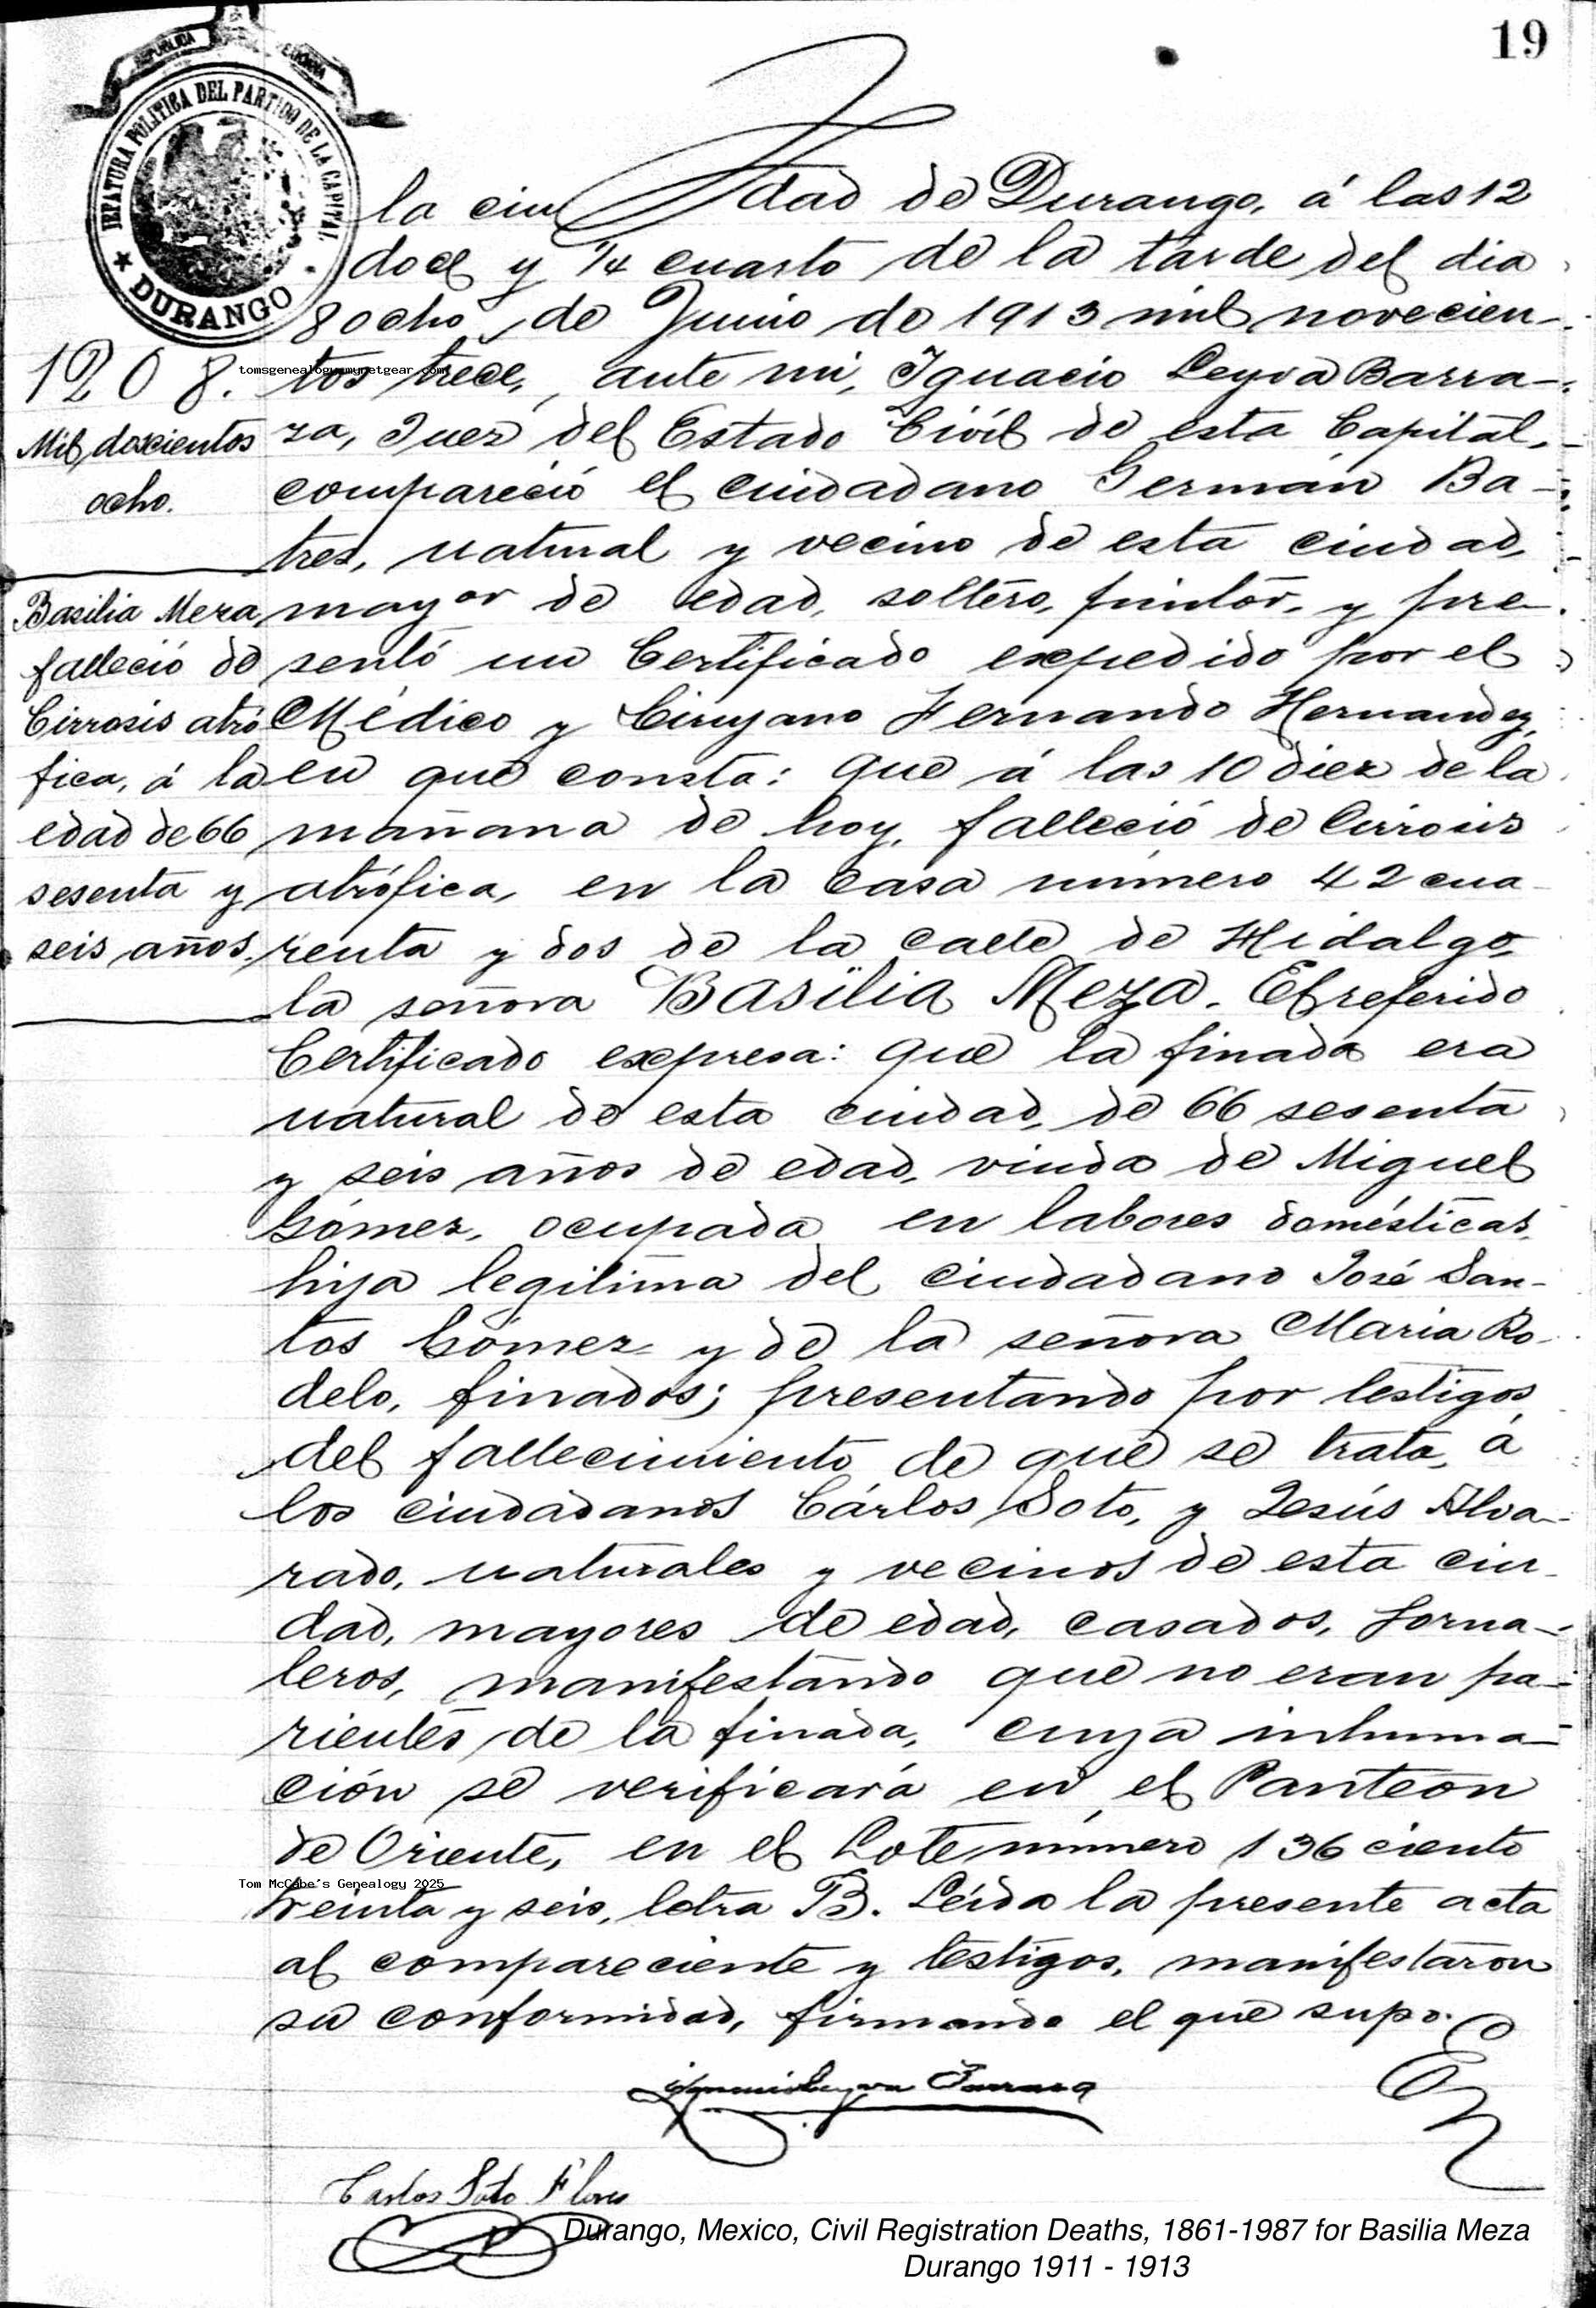 19
REPUBLICA MEXICANA
JEFATURA POLITICA DEL PARTIDO DE LA CAPITAL.
★ DURANGO
En la ciudad de Durango, á las 12
doce y 1/4 cuarto de la tarde del dia
8 ocho de Junio de 1913 mil novecien-
tos trece, ante mi, Ignacio Leyva Barra-
za, Juez del Estado Civil de esta Capital,
compareció el ciudadano Germán Ba-
tres, natural y vecino de esta ciudad,
mayor de edad, soltero, pintor, y pre-
sentó un Certificado expedido por el
Médico y Cirujano Fernando Hernandez,
en que consta: que á las 10 diez de la
mañana de hoy, falleció de Cirrosis
atrófica, en la casa número 42 cua-
renta y dos de la calle de Hidalgo,
la señora Basilia Meza. El referido
Certificado expresa: que la finada era
natural de esta ciudad, de 66 sesenta
y seis años de edad, viuda de Miguel
Gómez, ocupada en labores domésticas,
hija legitima del ciudadano José San-
tos Gómez y de la señora Maria Ro-
delo, finados; presentando por testigos
del fallecimiento de que se trata, á
los ciudadanos Cárlos Soto, y Jesús Alva-
rado, naturales y vecinos de esta ciu-
dad, mayores de edad, casados, jorna-
leros, manifestando que no eran pa-
rientes de la finada, cuya inhuma-
ción se verificará en el Panteon
de Oriente, en el Lote número 136 ciento
treinta y seis, letra B. Leida la presente acta
al compareciente y testigos, manifestaron
su conformidad, firmando el que supo.
1208.
Mil doscientos
ocho.
Basilia Meza,
falleció de
Cirrosis atró
fica, á la
edad de 66
sesenta y
seis años.
tomsgenealogy.mynetgear.com
Tom McCabe's Genealogy 2025
Ignacio Leyva Barraza
Carlos Soto Flores
Durango, Mexico, Civil Registration Deaths, 1861-1987 for Basilia Meza
Durango 1911 - 1913